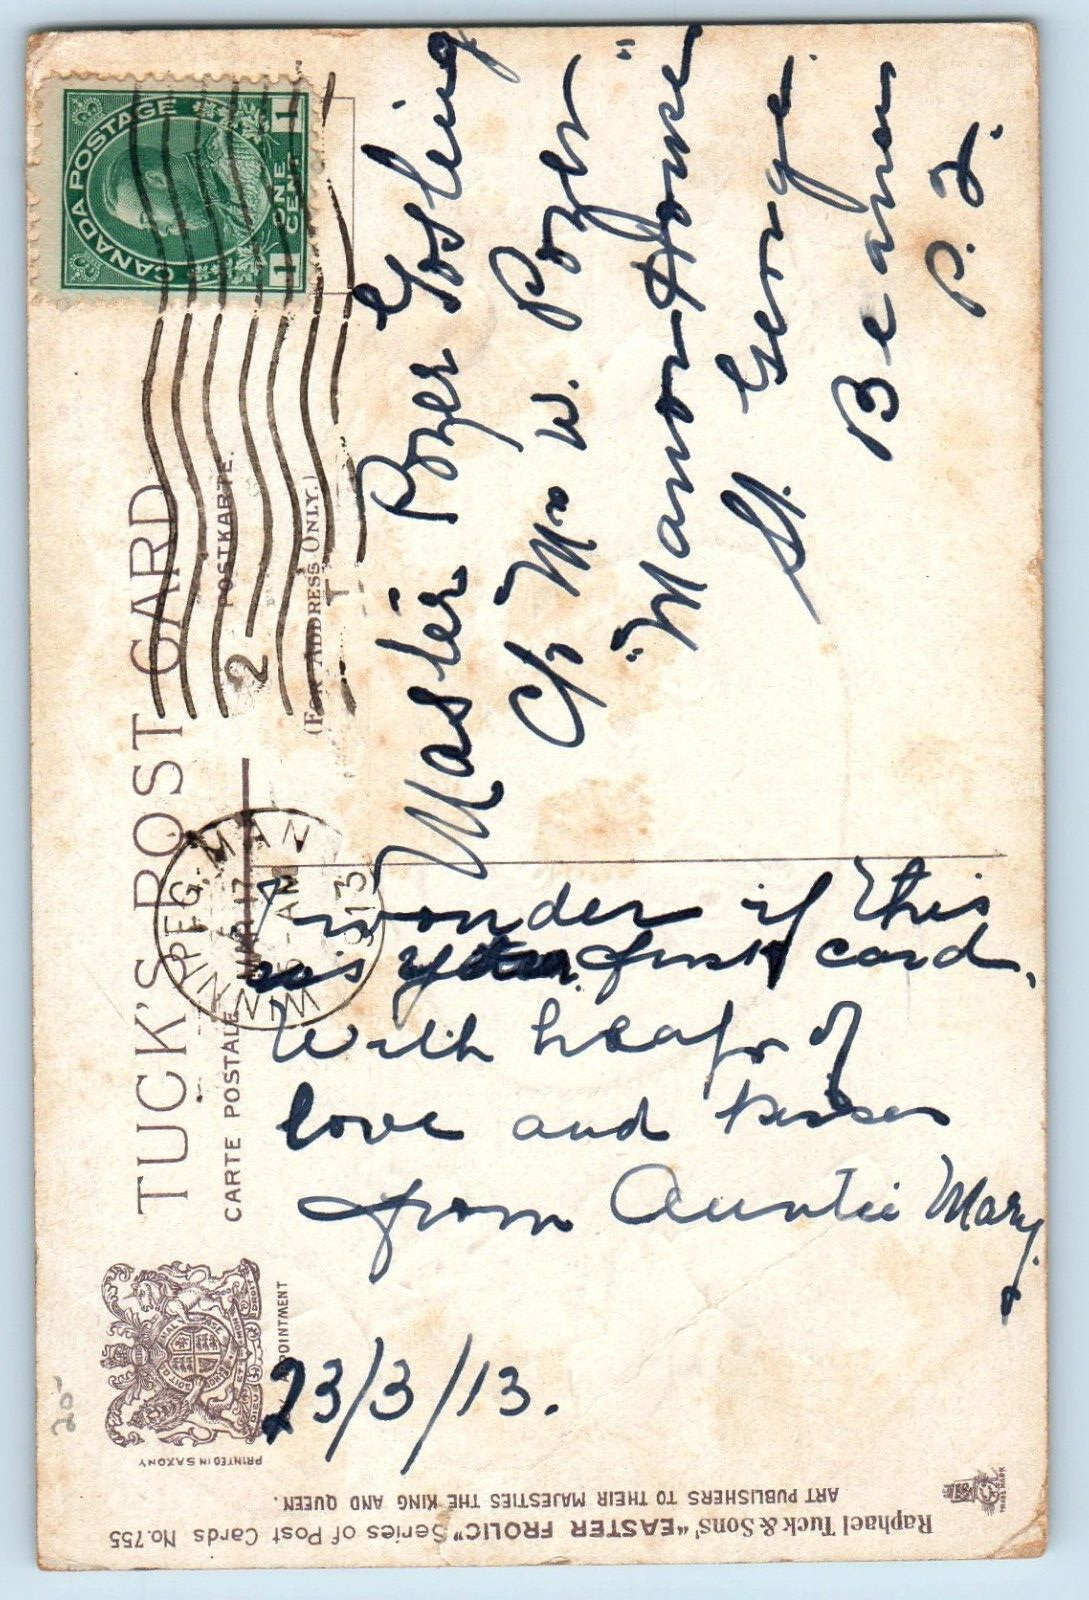 TUCK'S POST CARD
CARTE POSTALE
POSTKARTE.
(FOR ADDRESS ONLY.)
CANADA POSTAGE
1 ONE CENT 1
WINNIPEG, MAN
MAR 17
AM
1913
2
Master Pozer Gosling
C/o Mrs W. Pozer
"Manor House"
St. George
Beauce
P. 2.
I wonder if this
is your first card.
With heaps of
love and kisses
from Auntie Mary.
23/3/13.
APPOINTMENT
PRINTED IN SAXONY
20-
Raphael Tuck & Sons' "EASTER FROLIC" Series of Post Cards No. 755
ART PUBLISHERS TO THEIR MAJESTIES THE KING AND QUEEN.
TRADE MARK